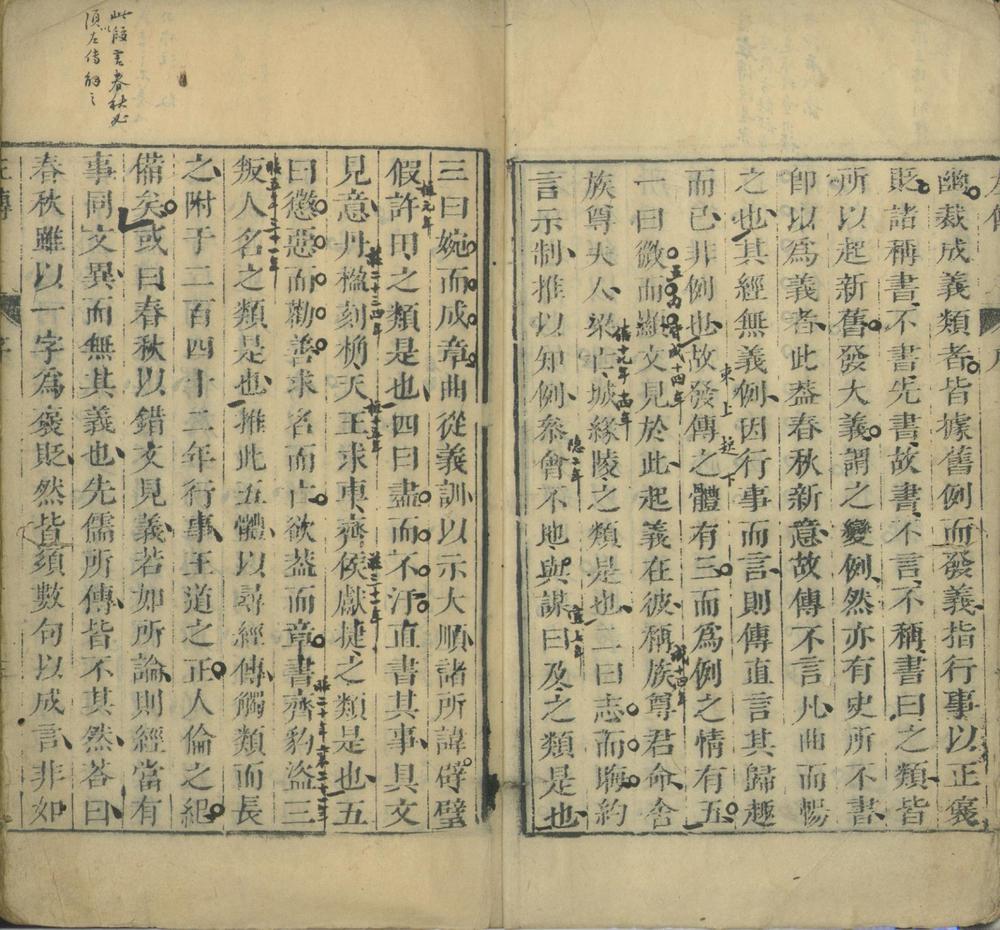 幽裁成義類者皆據舊例而發義指行事以正褒
貶諸稱書不書先書故書不言不稱書曰之類皆
所以起新舊發大義謂之變例然亦有史所不書
卽以爲義者此蓋春秋新意故傳不言凡曲而暢
之也其經無義例因行事而言則傳直言其歸趣
而已非例也故發傳之體有三而爲例之情有五
東上起下
一曰微而顯文見於此起義在彼稱族尊君命舍
成十四年
族尊夫人梁亡城緣陵之類是也二曰志而晦約
僖十九年 十四年
言示制推以知例參會不地與謀曰及之類是也
隱二年
宣七年
三曰婉而成章曲從義訓以示大順諸所諱辟璧
假許田之類是也四曰盡而不汙直書其事具文
桓元年
見意丹楹刻桷天王求車齊侯獻捷之類是也五
莊二十三四年
桓十五年
莊三十一年
曰懲惡而勸善求名而亡欲蓋而章書齊豹盜三
叛人名之類是也推此五體以尋經傳觸類而長
之附于二百四十二年行事王道之正人倫之紀
備矣或曰春秋以錯文見義若如所論則經當有
事同文異而無其義也先儒所傳皆不其然荅曰
春秋雖以一字爲襃貶然皆須數句以成言非如
此段言春秋必
須以左傳解之